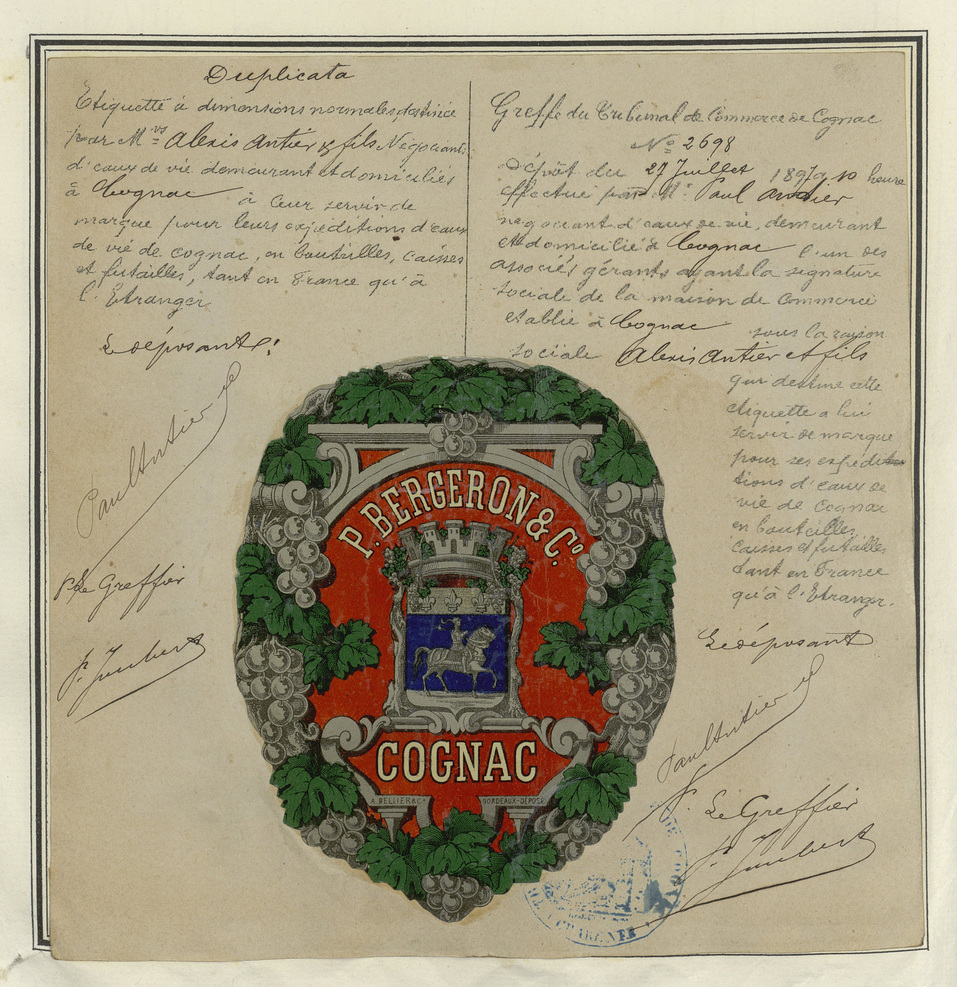 Duplicata
Etiquette à dimensions normales destinée
par M.rs Alexis Antier & fils Négociants
d'eaux de vie demeurant et domiciliés
à Cognac à leur servir de
marque pour leurs expéditions d'eaux
de vie de cognac, en bouteilles, caisses
et futailles, tant en France qu'à
l'Etranger
Le déposant:
Paul Antier
Le Greffier
Greffe du Tribunal de Commerce de Cognac
No 2698
Dépôt du 27 Juillet 10 heure
effectué par Mr Paul Antier
négociant d'eaux de vie, demeurant
et domicilié à Cognac l'un des
associés gérants ayant la signature
sociale de la maison de Commerce
établie à Cognac sous la raison
sociale Alexis Antier et fils
qui destine cette
etiquette a lui
servir de marque
pour ses expédi
tions d'eaux de
vie de Cognac
en bouteilles,
caisses et futailles
tant en France
qu'à l'Etranger.
Le déposant
Paul Antier
Le Greffier
P. BERGERON & Co.
COGNAC
A. BELLIER & Co
BORDEAUX-DÉPOSÉ